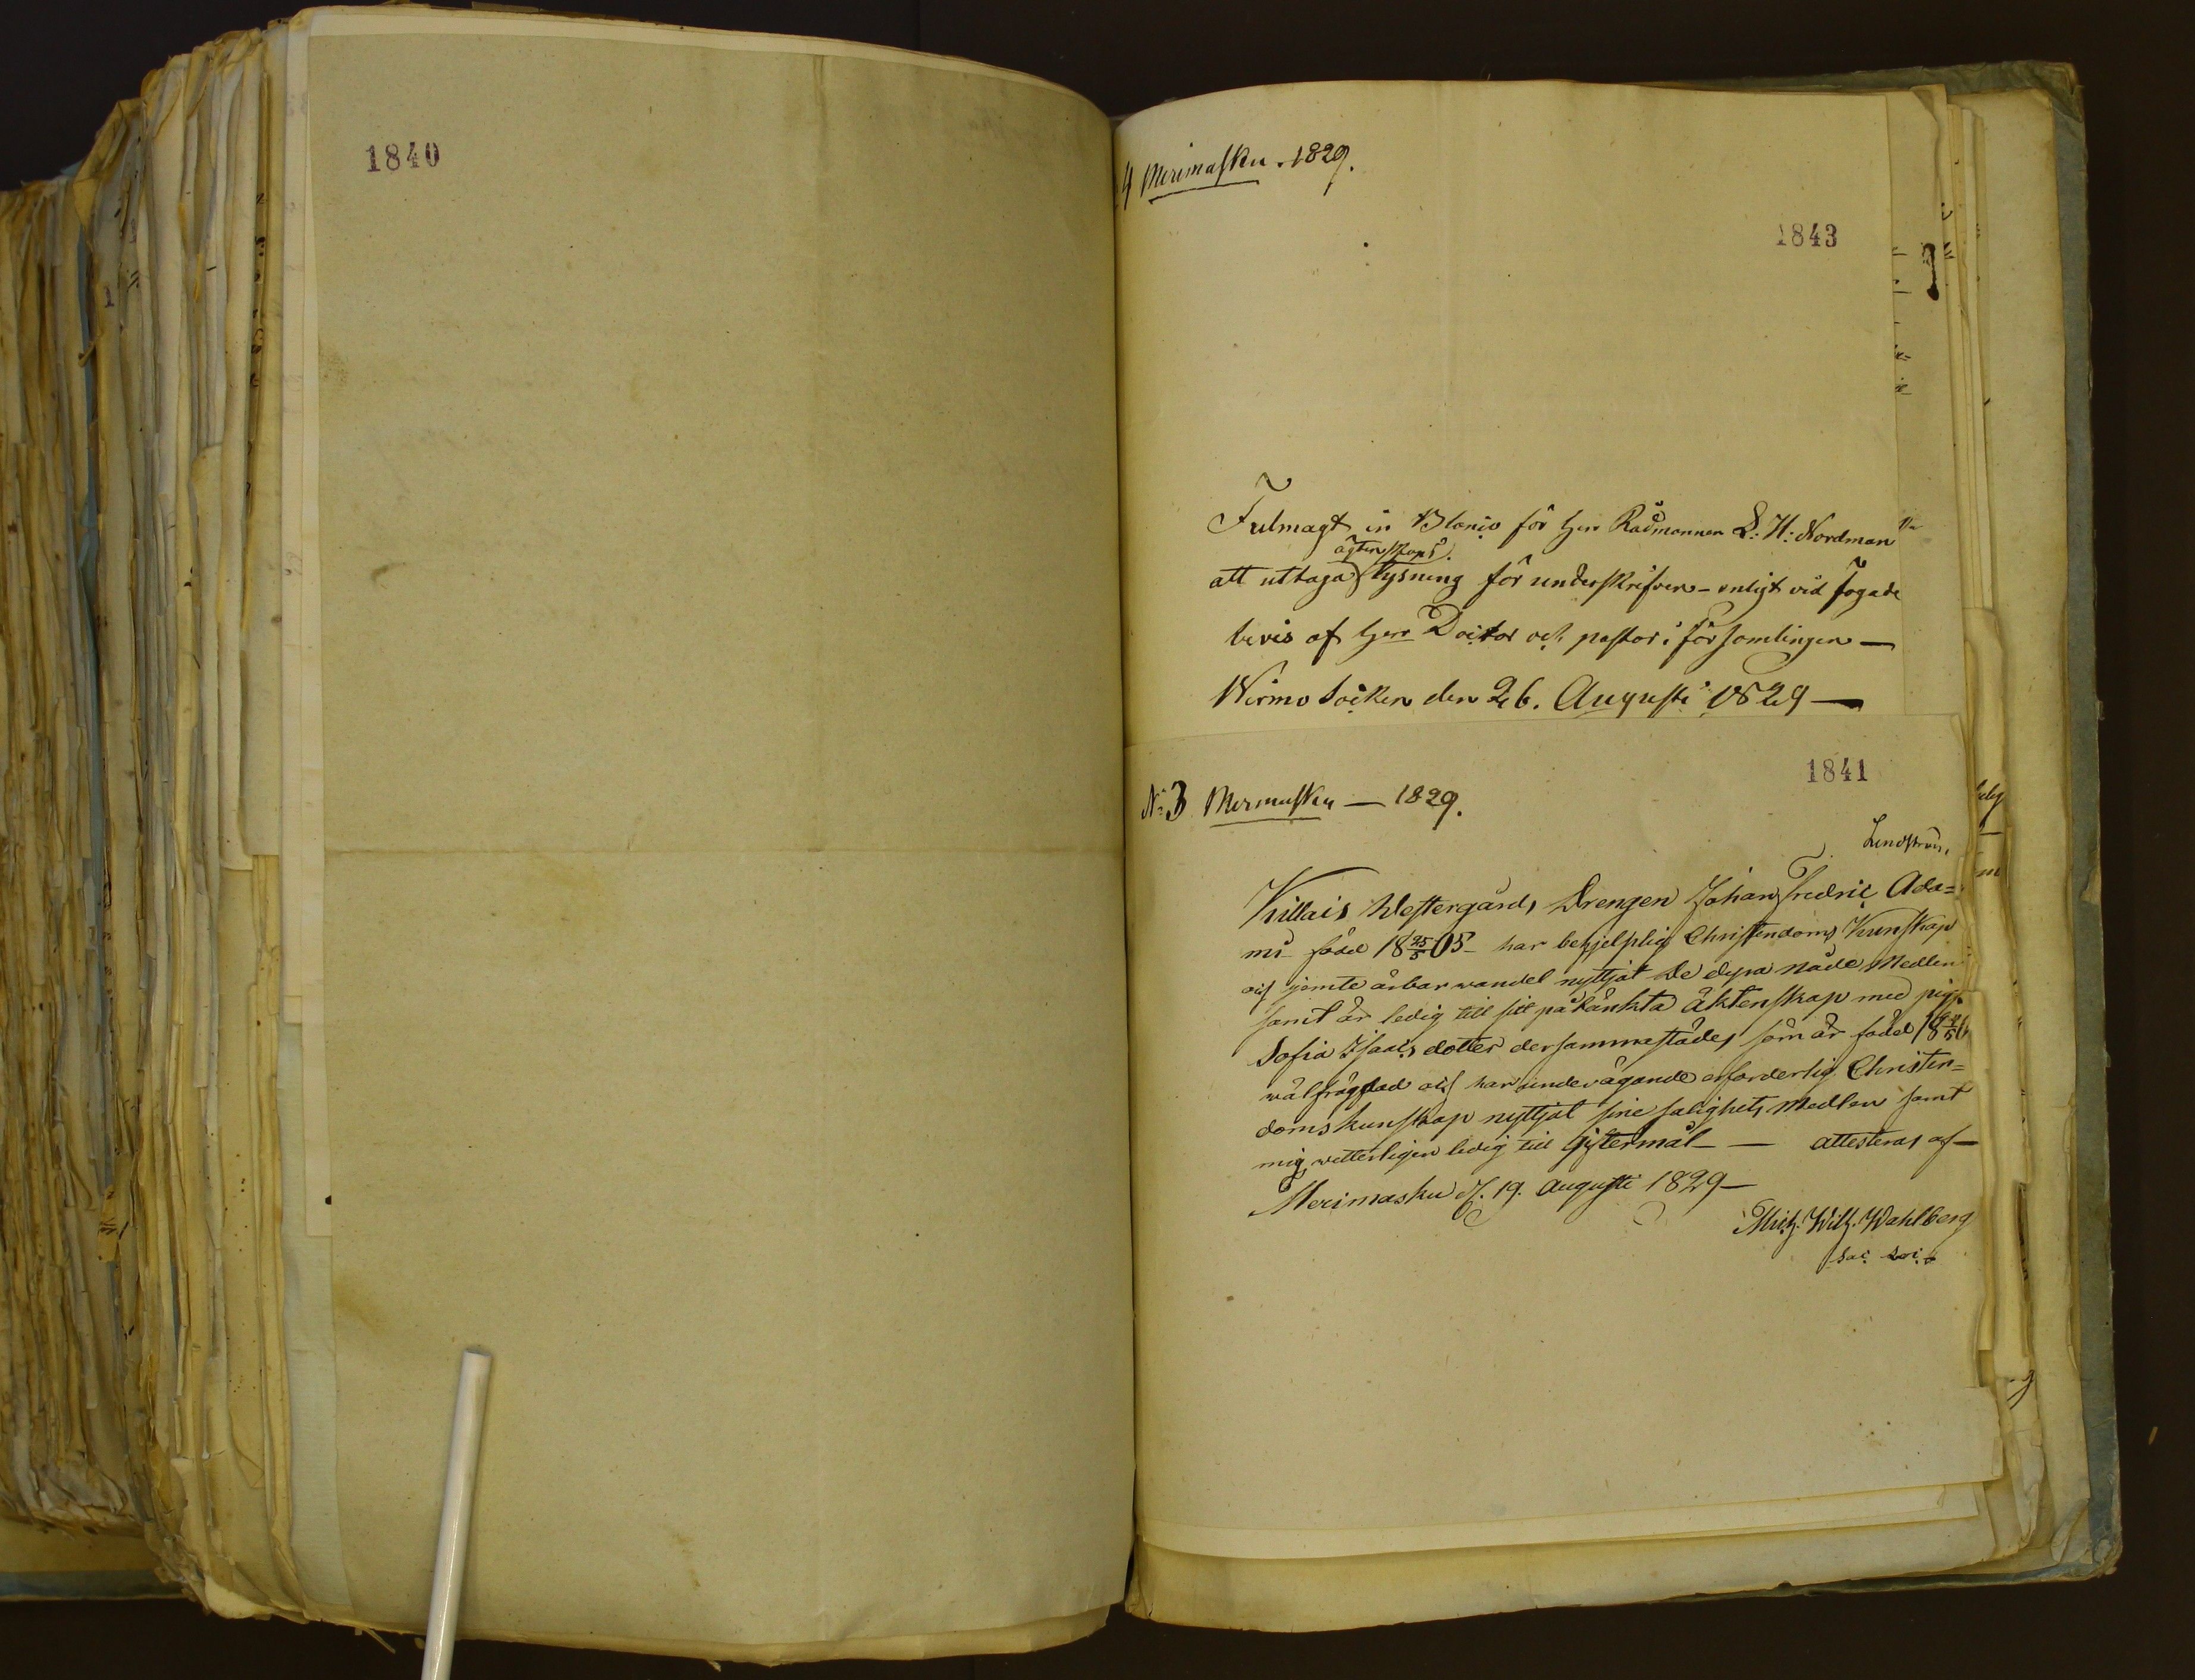 1840
4 Merimasku. 1829.
1843
Fulmagt in Blanco för Herr Rådmannen L: H: Nordman
ägtenskaps
att uttaga lysning för underskrifven – enligt vid fogade
bevis af Herr Doctor och pastor i församlingen —
Wirmo Socken den 26. Augusti 1829 —
1841
No 3 Merimasku — 1829.
Lindström
Killais Westergårds Drengen Johan Fredric Ada=
mi född 18 25/5 05 – har behjelplig Christendoms Kunskap
och jemte ärbar wandel nyttjat De dyra Nåde Medlen
samt är ledig till sitt påtänkta äktenskap med pig.
Sofia Isaacs dotter dersammastädes som är född
wälfrägdad och har undervägande erforderlig Christen=
domskunskap nyttjat sine salighets Medlen samt
mig wetterligen ledig till Giftermål — attesteras af —
Merimasku d. 19. Augusti 1829 —
Mich. Wilh. Wahlberg
Sac.